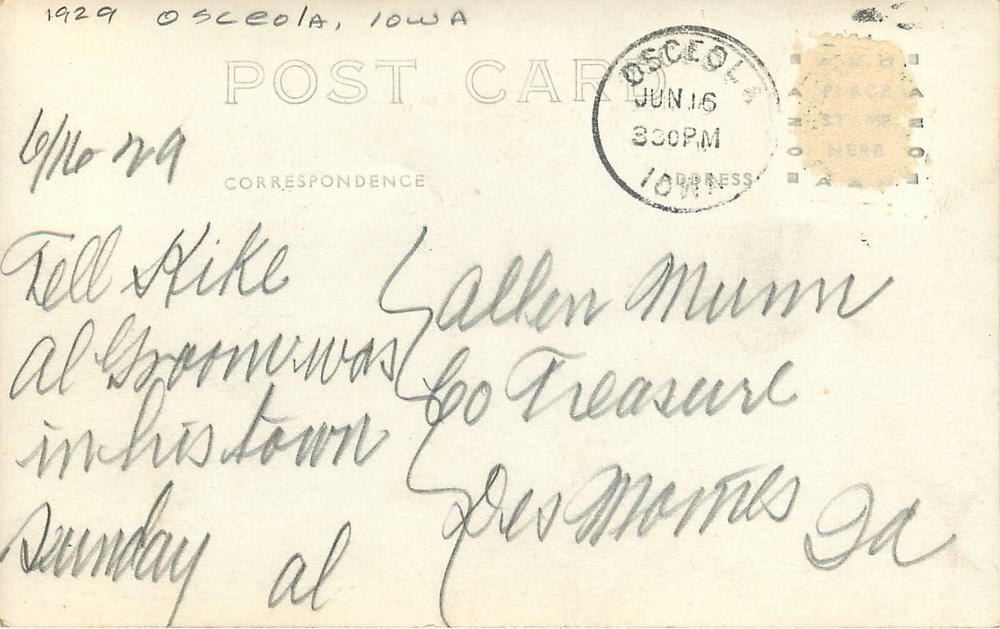 1929 OSCEOLA, IOWA
POST CARD
OSCEOLA
JUN 16
330 PM
IOWA
PLACE
STAMP
HERE
6/16 29
CORRESPONDENCE
ADDRESS
Tell Kike
Al Groom was
in his town
Sunday
al
Allen Munn
Co Treasure
Des Moines Ia